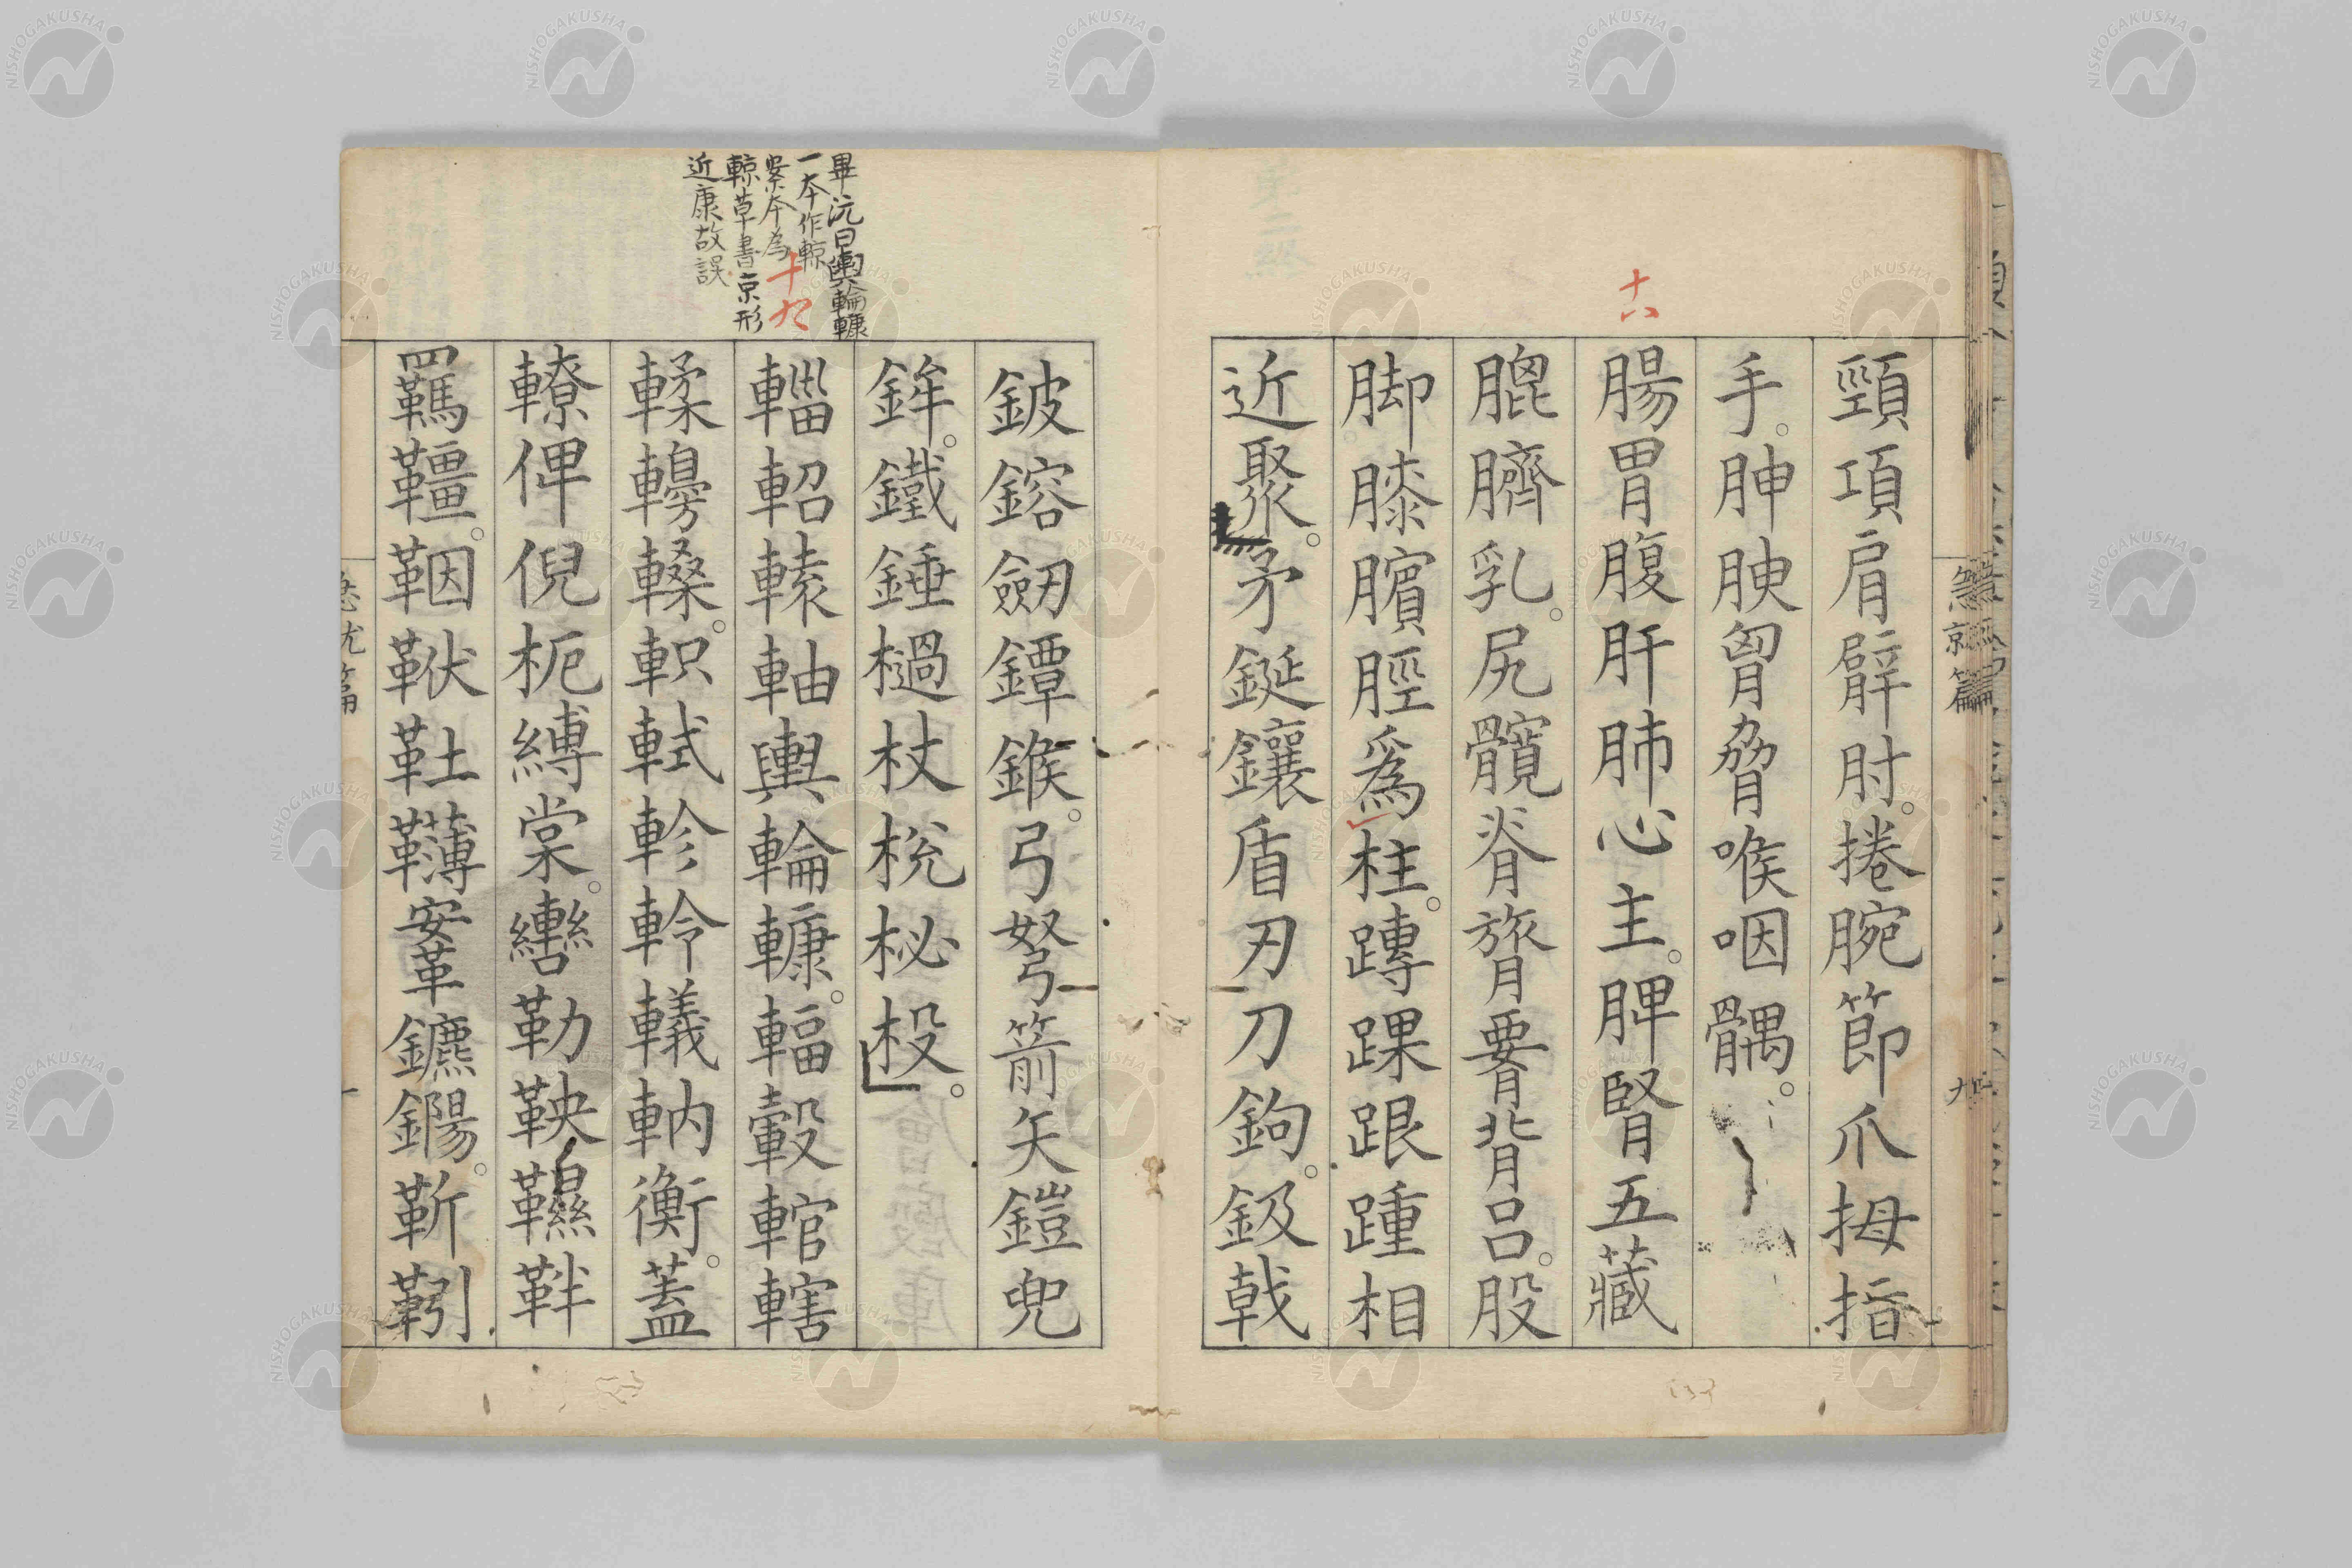 十八
頸項肩臂肘。捲腕節爪拇指
手。胂腴胷脅喉咽髃。
腸胃腹肝肺心主。脾腎五藏
膍臍乳。尻髖脊膂要背吕。股
脚膝臏脛爲柱。䠣踝跟踵相
近聚。矛鋋鑲盾刃刀鉤。鈒戟
鈹鎔劒鐔鍭。弓弩箭矢鎧兜
鉾。鐵錘檛杖梲柲杸。
輜軺轅軸輿輪𨎍。輻轂輨轄
輮轅𨍉。軹軾軫軨轙軜衡。蓋
轑俾倪枙縛棠。轡勒鞅韅靽
羈韁。鞇䩜靯䪙鞍鑣鐊。靳靷
畢沅曰輿輪𨎍
一本作輬
案本為
輬草書京形
近康故誤
十九
急就篇
九
急就篇